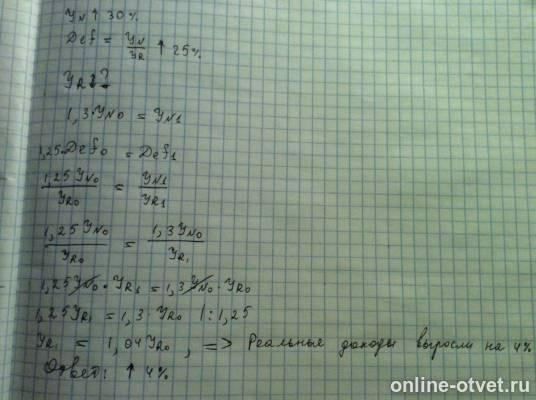 YN ↑ 30%
Def = YN/YR ↑ 25%
YR1?
1,3·YN0 = YN1
1,25·Def0 = Def1
1,25YN0/YR0 = YN1/YR1
1,25YN0/YR0 = 1,3YN0/YR1
1,25YN0·YR1 = 1,3YN0·YR0
1,25YR1 = 1,3·YR0 |:1,25
YR1 = 1,04YR0, => Реальные доходы выросли на 4%
Ответ: ↑ 4%
online-otvet.ru